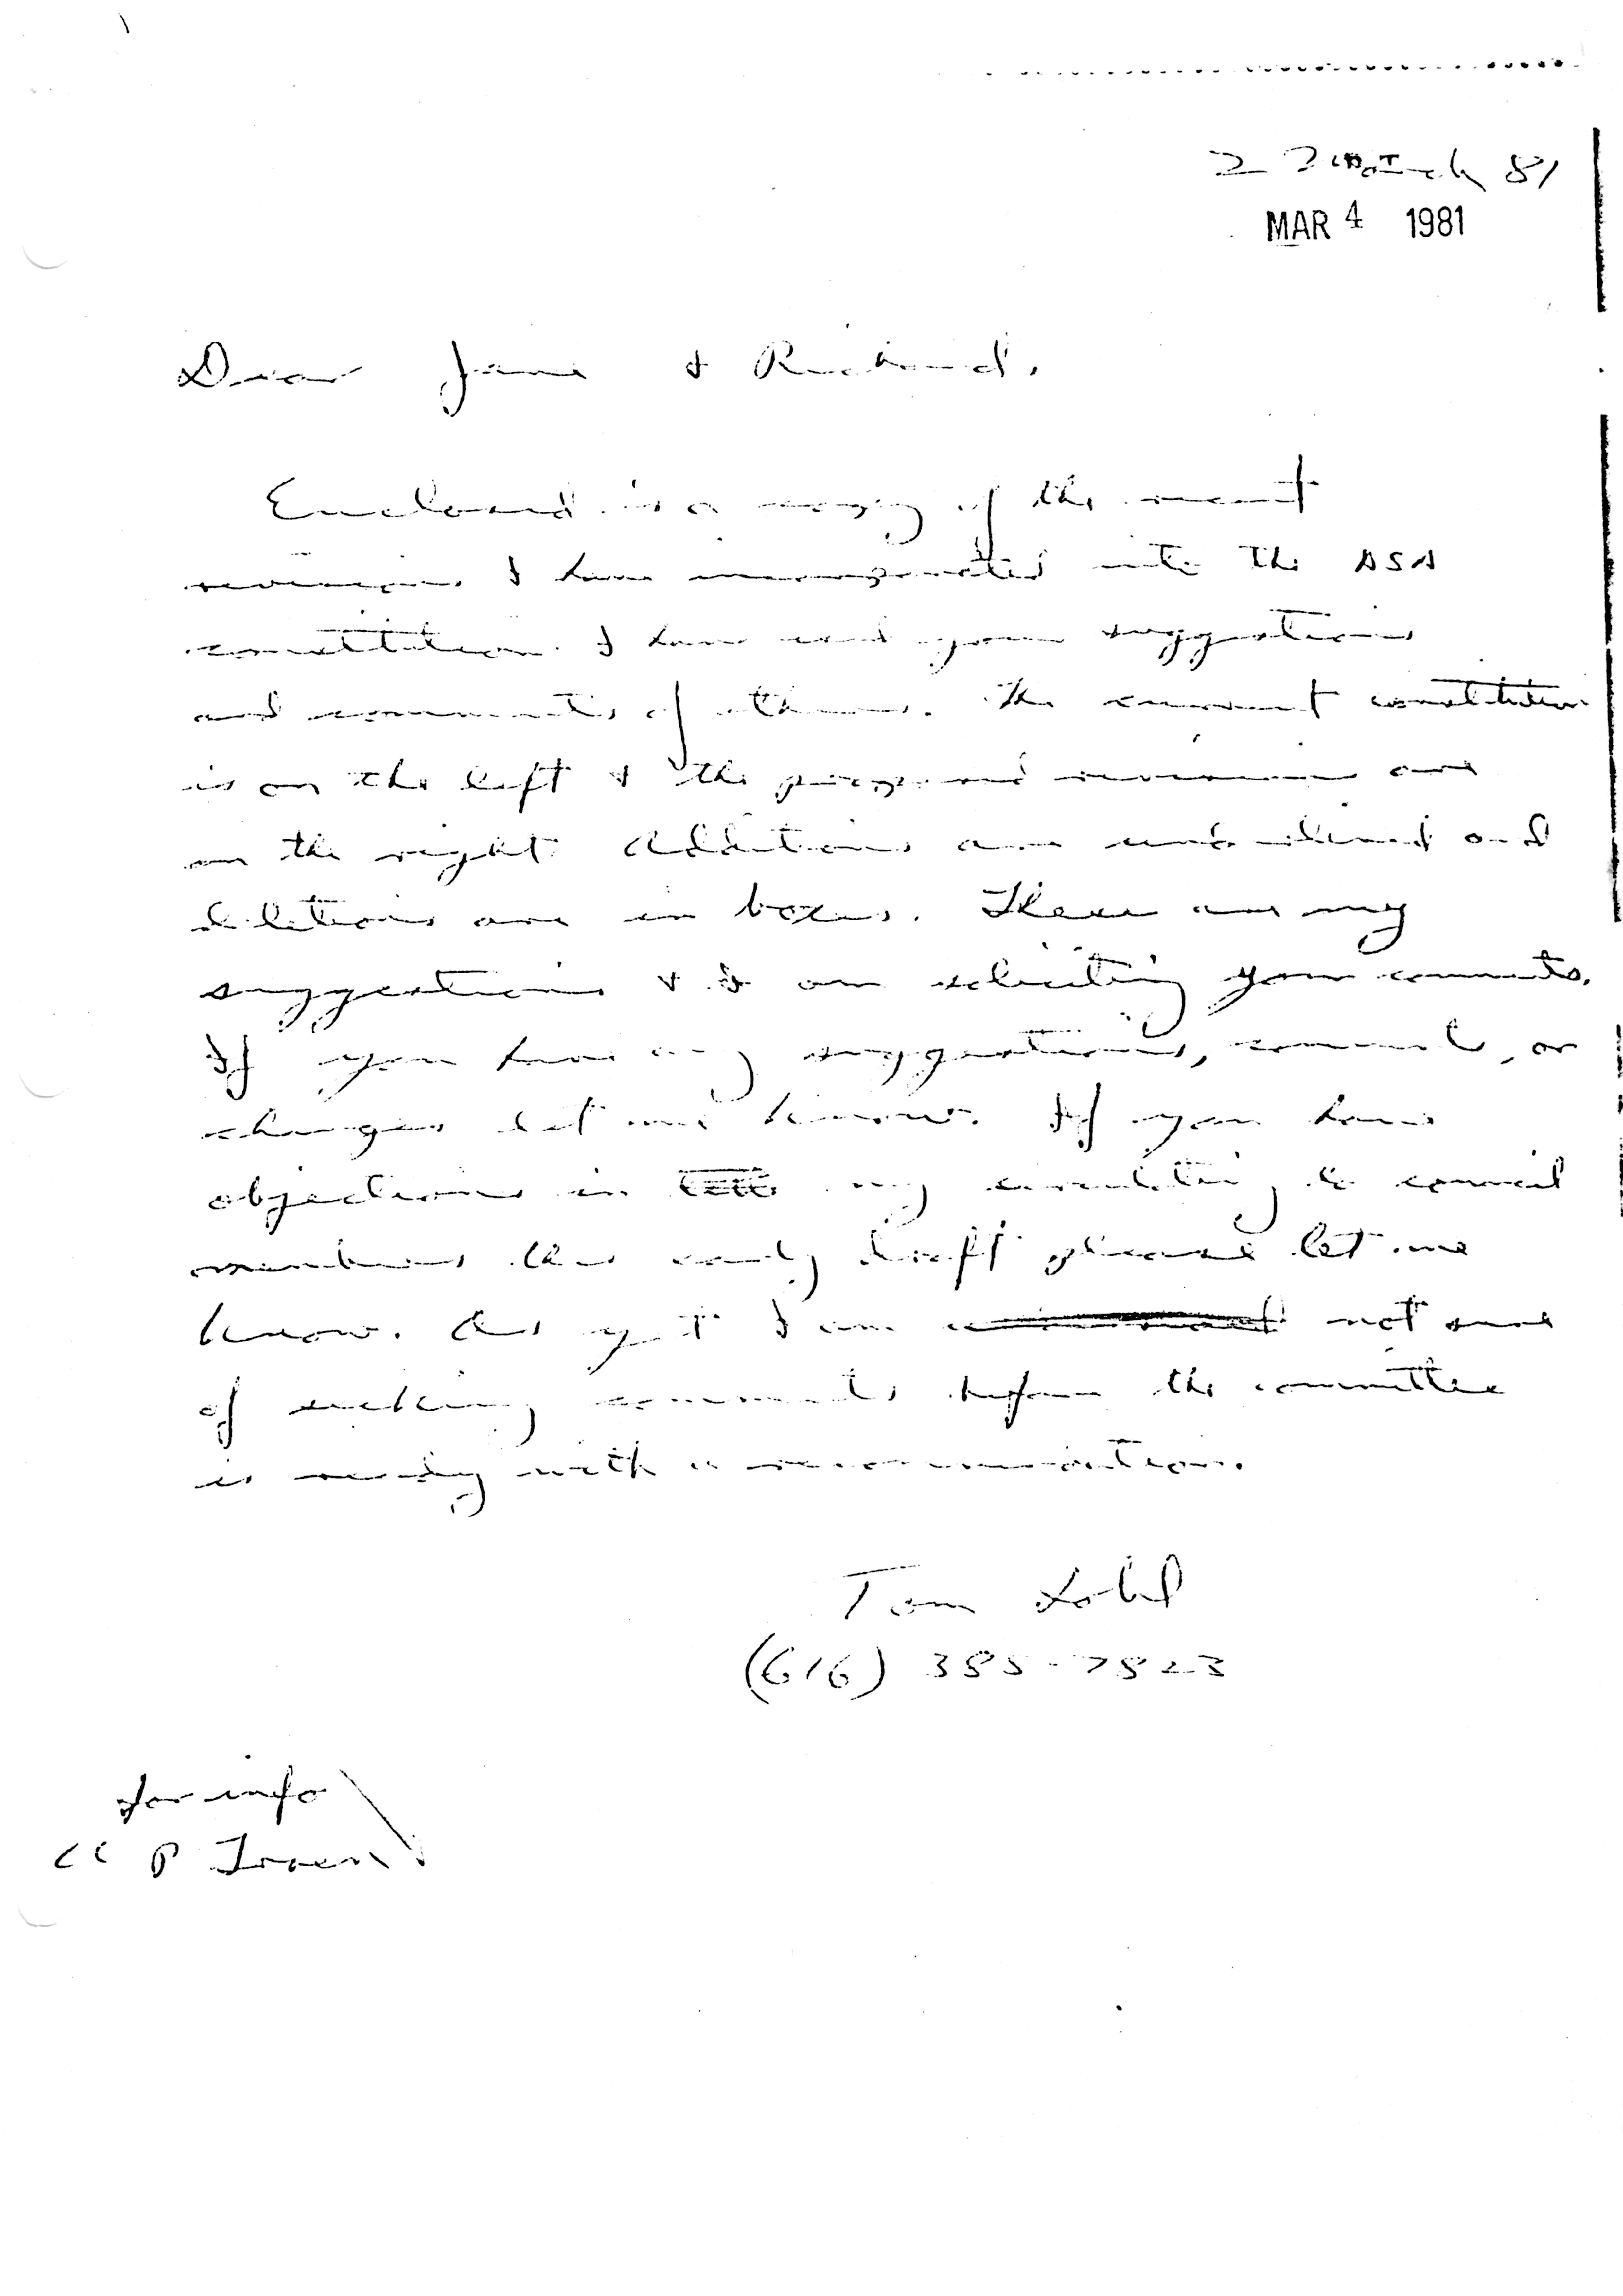 81
MAR 4 1981
Dear Jane & Richard,
Enclosed is a copy of the recent
revisions I have incorporated into the ASA
constitution. I have used your suggestions
and comments of others. The current constitution
is on the left & the proposed revisions are
on the right. Additions are underlined and
deletions are in boxes. These are my
suggestions & I am soliciting your comments.
If you have any suggestions, comments, or
changes let me know. If you have
objections in my circulating to council
members this early draft please let me
know. As yet I am not sure
of seeking comments before the committee
is ready with a recommendation.
Tom
(616) 385-7823
for info
cc P